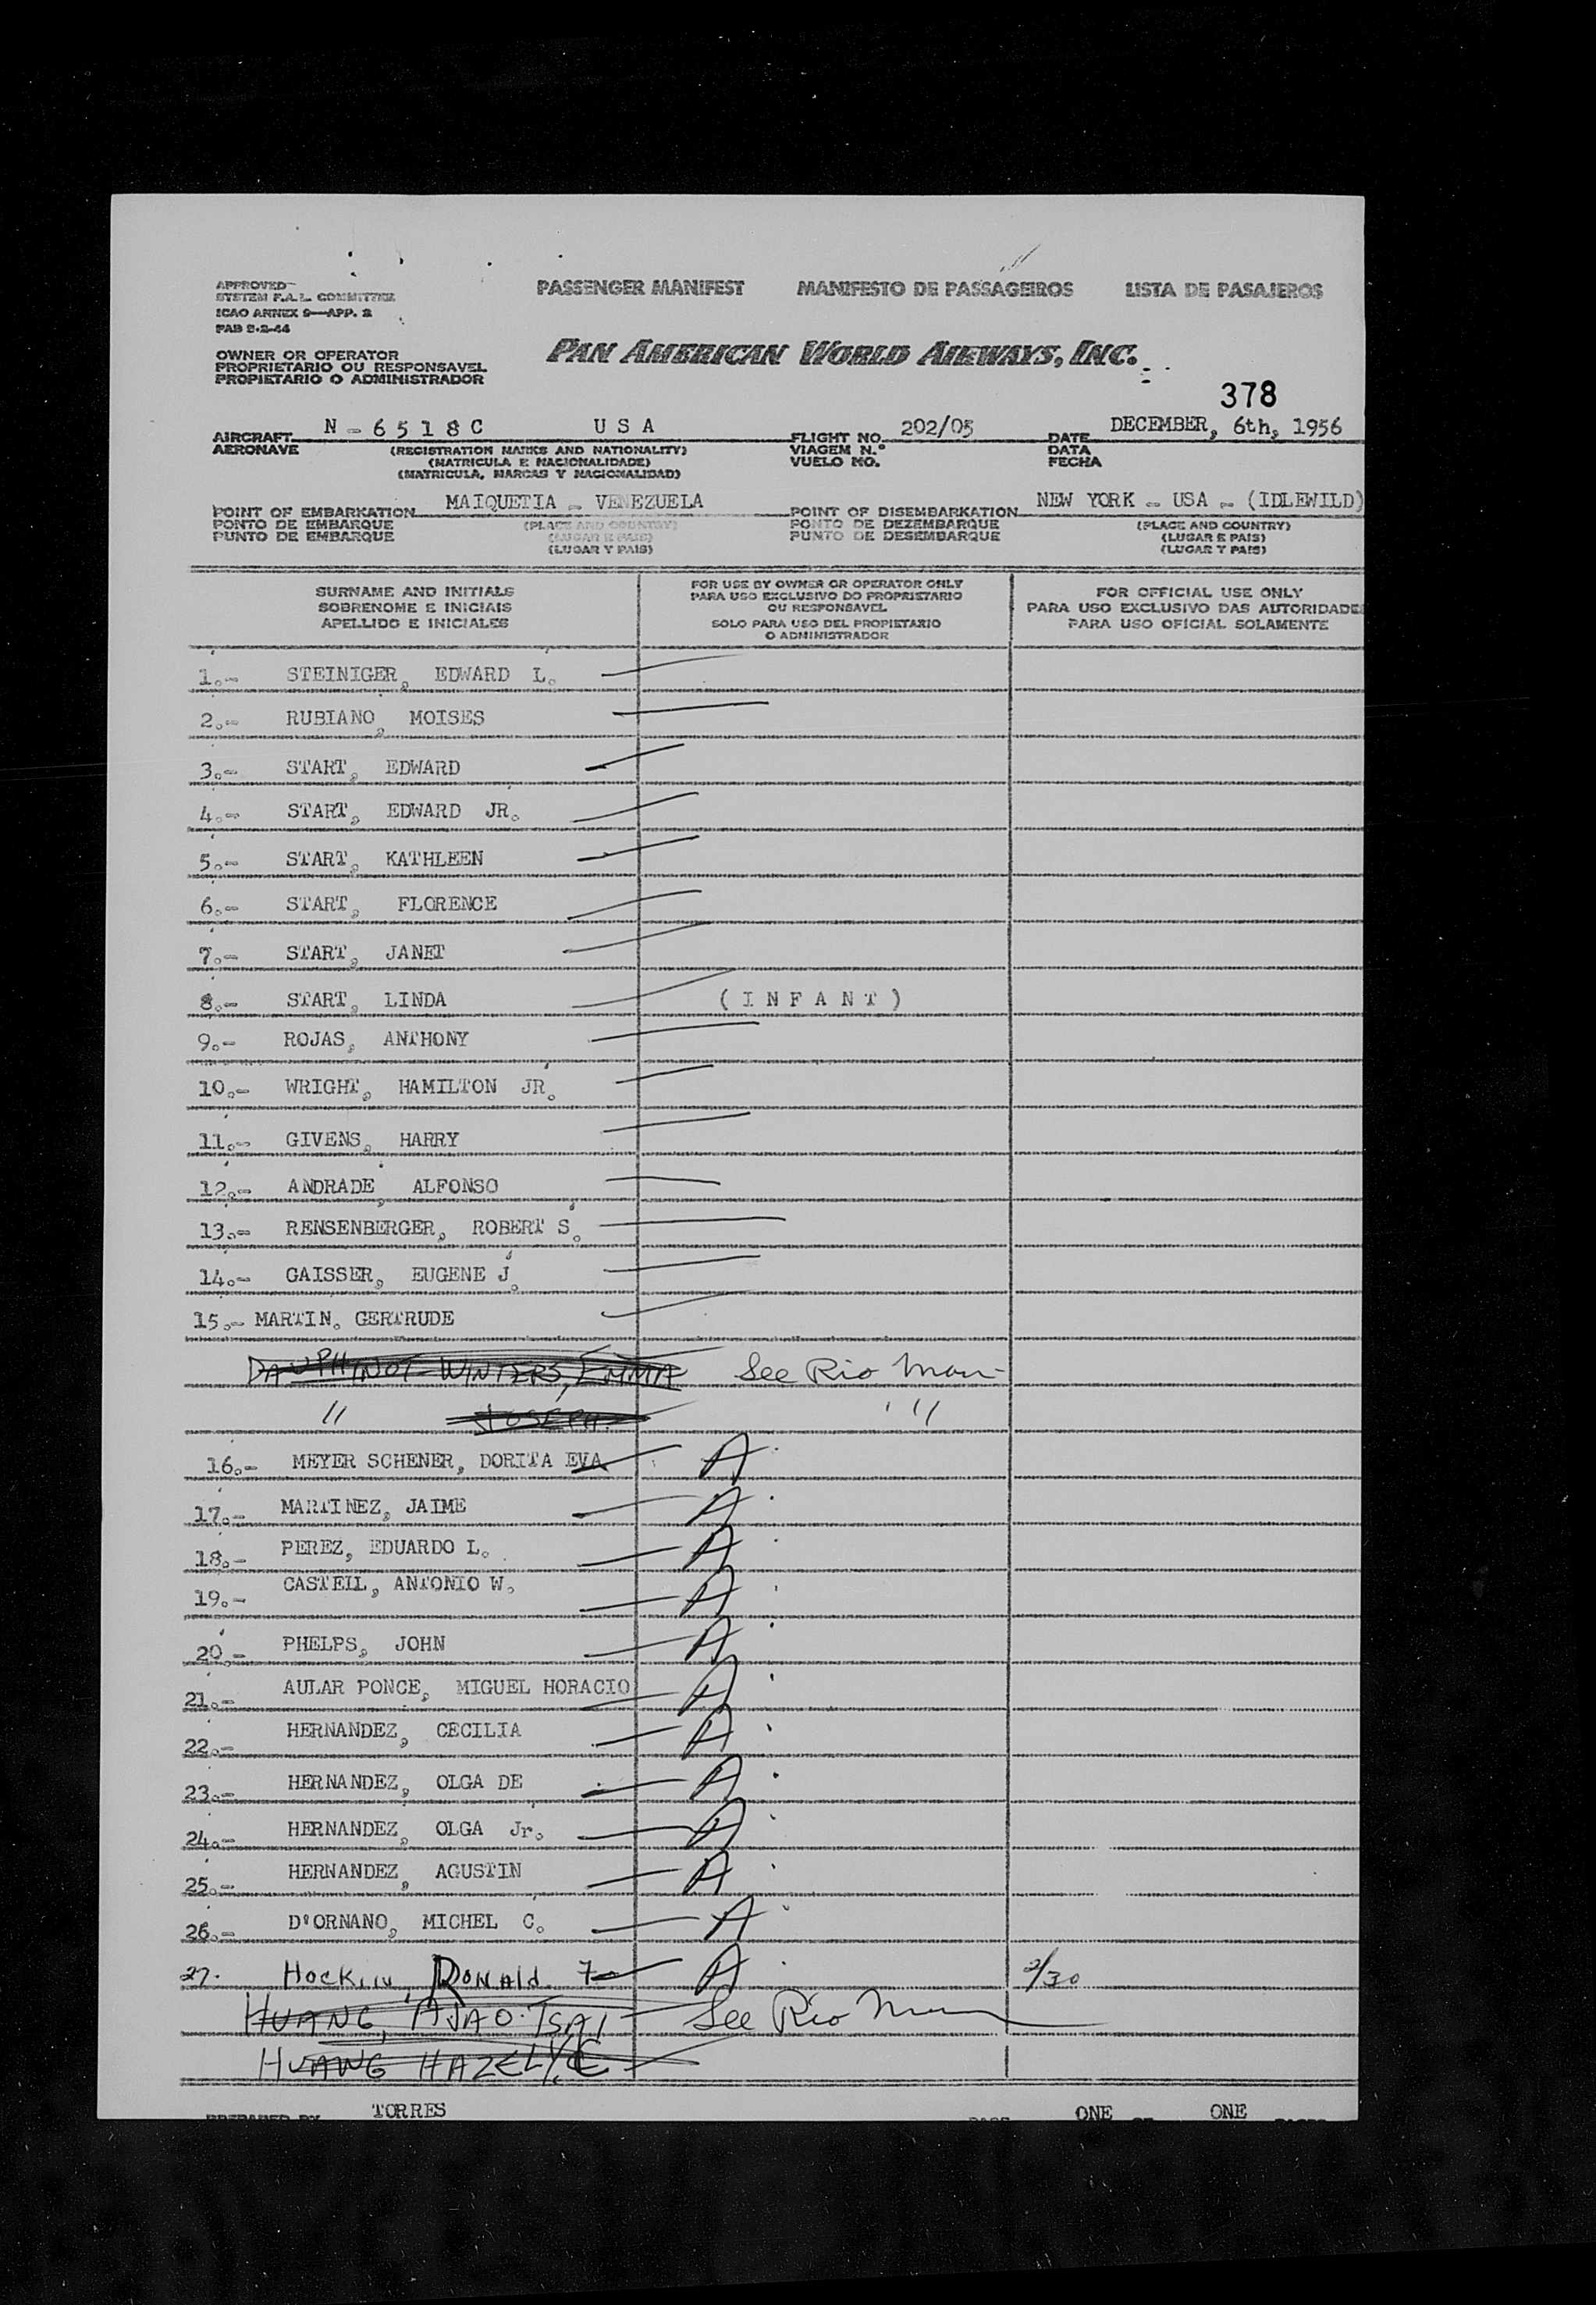 APPROVED
SYSTEM F.A.L. COMMITTEE
ICAO ANNEX 9—APP. 2
FAB 2-2-44
PASSENGER MANIFEST MANIFESTO DE PASSAGEIROS LISTA DE PASAJEROS
OWNER OR OPERATOR
PROPRIETARIO OU RESPONSAVEL
PROPIETARIO O ADMINISTRADOR
PAN AMERICAN WORLD AIRWAYS, INC.
378
AIRCRAFT N - 6 5 1 8 C U S A FLIGHT NO. 202/05 DATE DECEMBER, 6th, 1956
AERONAVE (REGISTRATION MARKS AND NATIONALITY) VIAGEM N.º DATA
(MATRICULA E NACIONALIDADE) VUELO NO. FECHA
(MATRICULA, MARCAS Y NACIONALIDAD)
POINT OF EMBARKATION MAIQUETIA - VENEZUELA POINT OF DISEMBARKATION NEW YORK - USA - (IDLEWILD)
PONTO DE EMBARQUE (PLACE AND COUNTRY) PONTO DE DEZEMBARQUE (PLACE AND COUNTRY)
PUNTO DE EMBARQUE (LUGAR E PAIS) PUNTO DE DESEMBARQUE (LUGAR E PAIS)
(LUGAR Y PAIS) (LUGAR Y PAIS)
SURNAME AND INITIALS
SOBRENOME E INICIAIS
APELLIDO E INICIALES
FOR USE BY OWNER OR OPERATOR ONLY
PARA USO EXCLUSIVO DO PROPRIETARIO
OU RESPONSAVEL
SOLO PARA USO DEL PROPIETARIO
O ADMINISTRADOR
FOR OFFICIAL USE ONLY
PARA USO EXCLUSIVO DAS AUTORIDADE
PARA USO OFICIAL SOLAMENTE
1.- STEINIGER, EDWARD L.
2.- RUBIANO, MOISES
3.- START, EDWARD
4.- START, EDWARD JR.
5.- START, KATHLEEN
6.- START, FLORENCE
7.- START, JANET
8.- START, LINDA ( I N F A N T )
9.- ROJAS, ANTHONY
10.- WRIGHT, HAMILTON JR.
11.- GIVENS, HARRY
12.- ANDRADE, ALFONSO
13.- RENSENBERGER, ROBERT S.
14.- GAISSER, EUGENE J.
15.- MARTIN. GERTRUDE
DAUPHINOT WINTERS, EMMA See Rio Man
" JOSEPH "
16.- MEYER SCHENER, DORITA EVA A
17.- MARTINEZ, JAIME A
18.- PEREZ, EDUARDO L. A
19.- CASTEIL, ANTONIO W. A
20.- PHELPS, JOHN A
21.- AULAR PONCE, MIGUEL HORACIO A
22.- HERNANDEZ, CECILIA A
23.- HERNANDEZ, OLGA DE A
24.- HERNANDEZ, OLGA Jr. A
25.- HERNANDEZ, AGUSTIN A
26.- D'ORNANO, MICHEL C. A
27. Hockin, Donald 7 A 2/30
HUANG, AJAO-TSAI See Rio Man
HUANG HAZEL Y.C
PREPARED BY TORRES PAGE ONE OF ONE PAGES